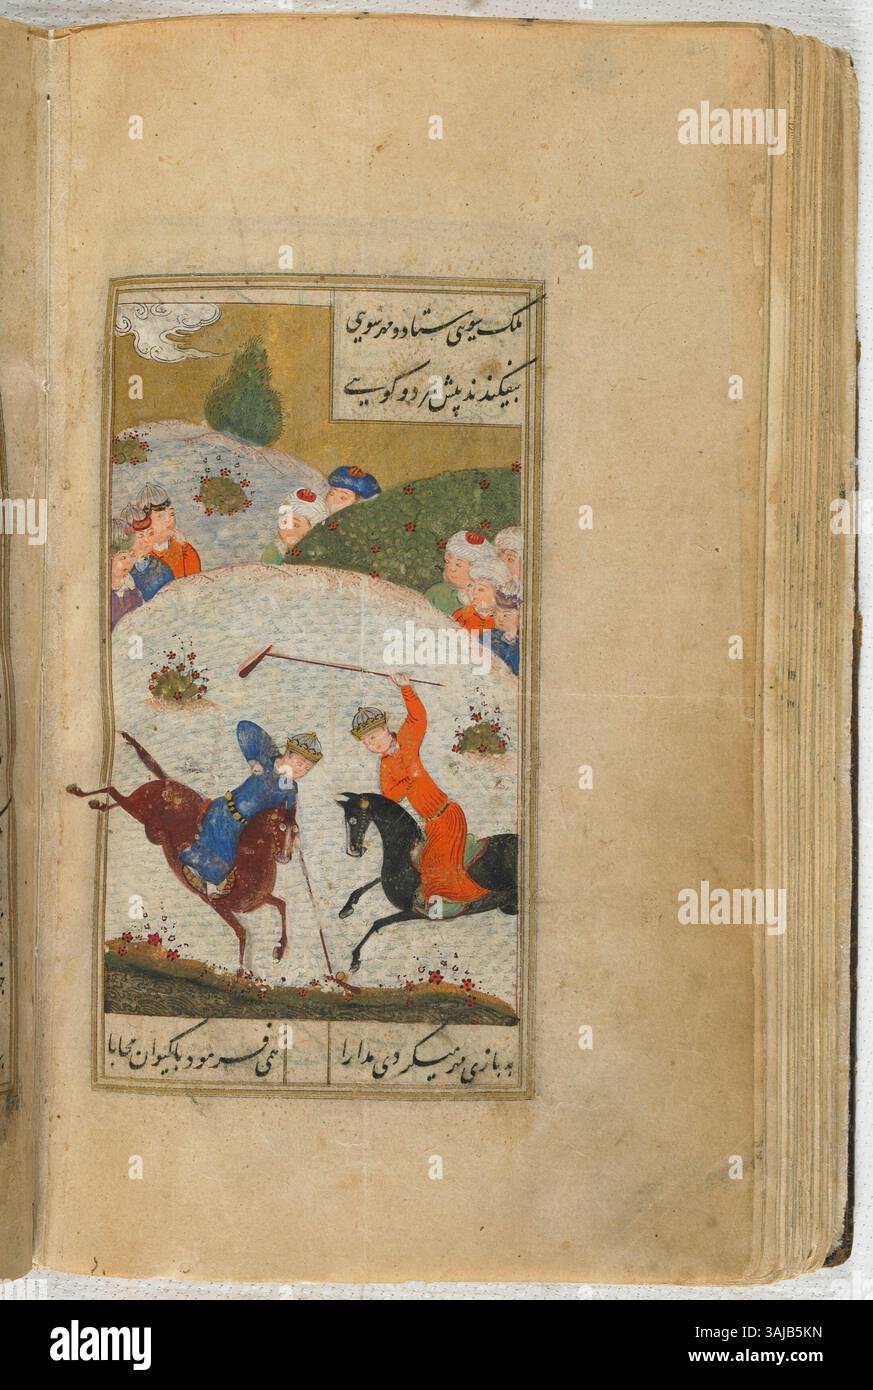 ملک سویی ستاد و مهر سویی
بیفکندند پیش هر دو گویی
به بازی مهر میکردی مدارا
همی فرمود با کیوان محابا
alamy
alamy
a
Image ID: 3AJB5KN
www.alamy.com